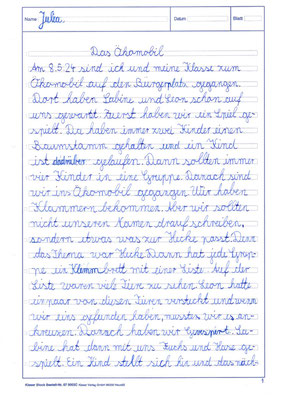 Name Julia Datum Blatt
Das Ökomobil
Am 8.5.24 sind ich und meine Klasse zum
Ökomobil auf den Bürgerplatz gegangen.
Dort haben Sabine und Leon schon auf
uns gewartt. Zuerst haben wir ein Spiel ge-
spielt. Da haben immer zwei Kinder einen
Baumstamm gehalten und ein Kind
ist darüber gelaufen. Dann sollten immer
vier Kinder in eine Gruppe. Danach sind
wir ins Ökomobil gegangen. Wir haben
Klammern bekommen. Aber wir sollten
nicht unseren Namen drauf schreiben,
sondern etwas was zur Hecke passt. Denn
das Thema war Hecke. Dann hat jede Grup-
pe ein Klemmbrett mit einer Liste. Auf der
Liste waren viel Tiere zu sehen. Leon hatte
ein paar von diesen Tieren versteckt und wenn
wir eins gefunden haben, musstes wir es an-
kreuzen. Danach haben wir Sa-
bine hat dann mit uns Fuchs und Hase ge-
spielt. Ein Kind stellt sich hin und das näch-
1